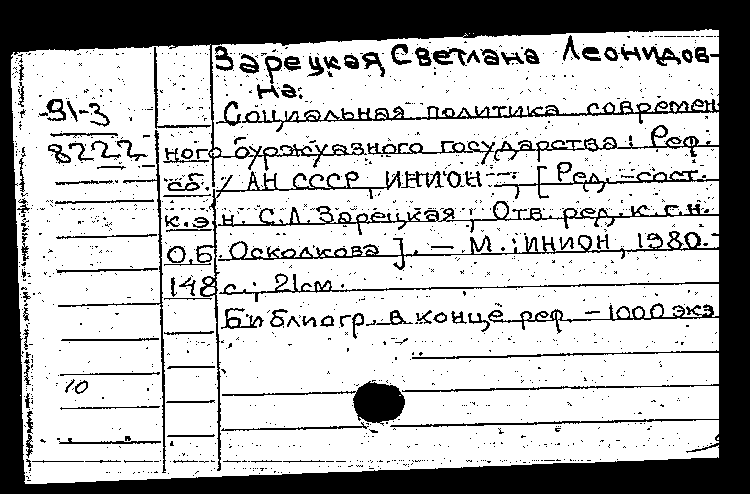 Зарецкая Светлана Леонидов-
на.
91-3
Социальная политика современ
8222
ного буржуазного государства: Реф.
сб. / АН СССР, ИНИОН –; [Ред.-сост.
к.э.н. С.Л. Зарецкая; Отв. ред. к.г.н.
О.Б. Осколкова]. – М.: ИНИОН, 1980.-
148 с.; 21 см.
Библиогр. в конце реф. – 1000 экз
10